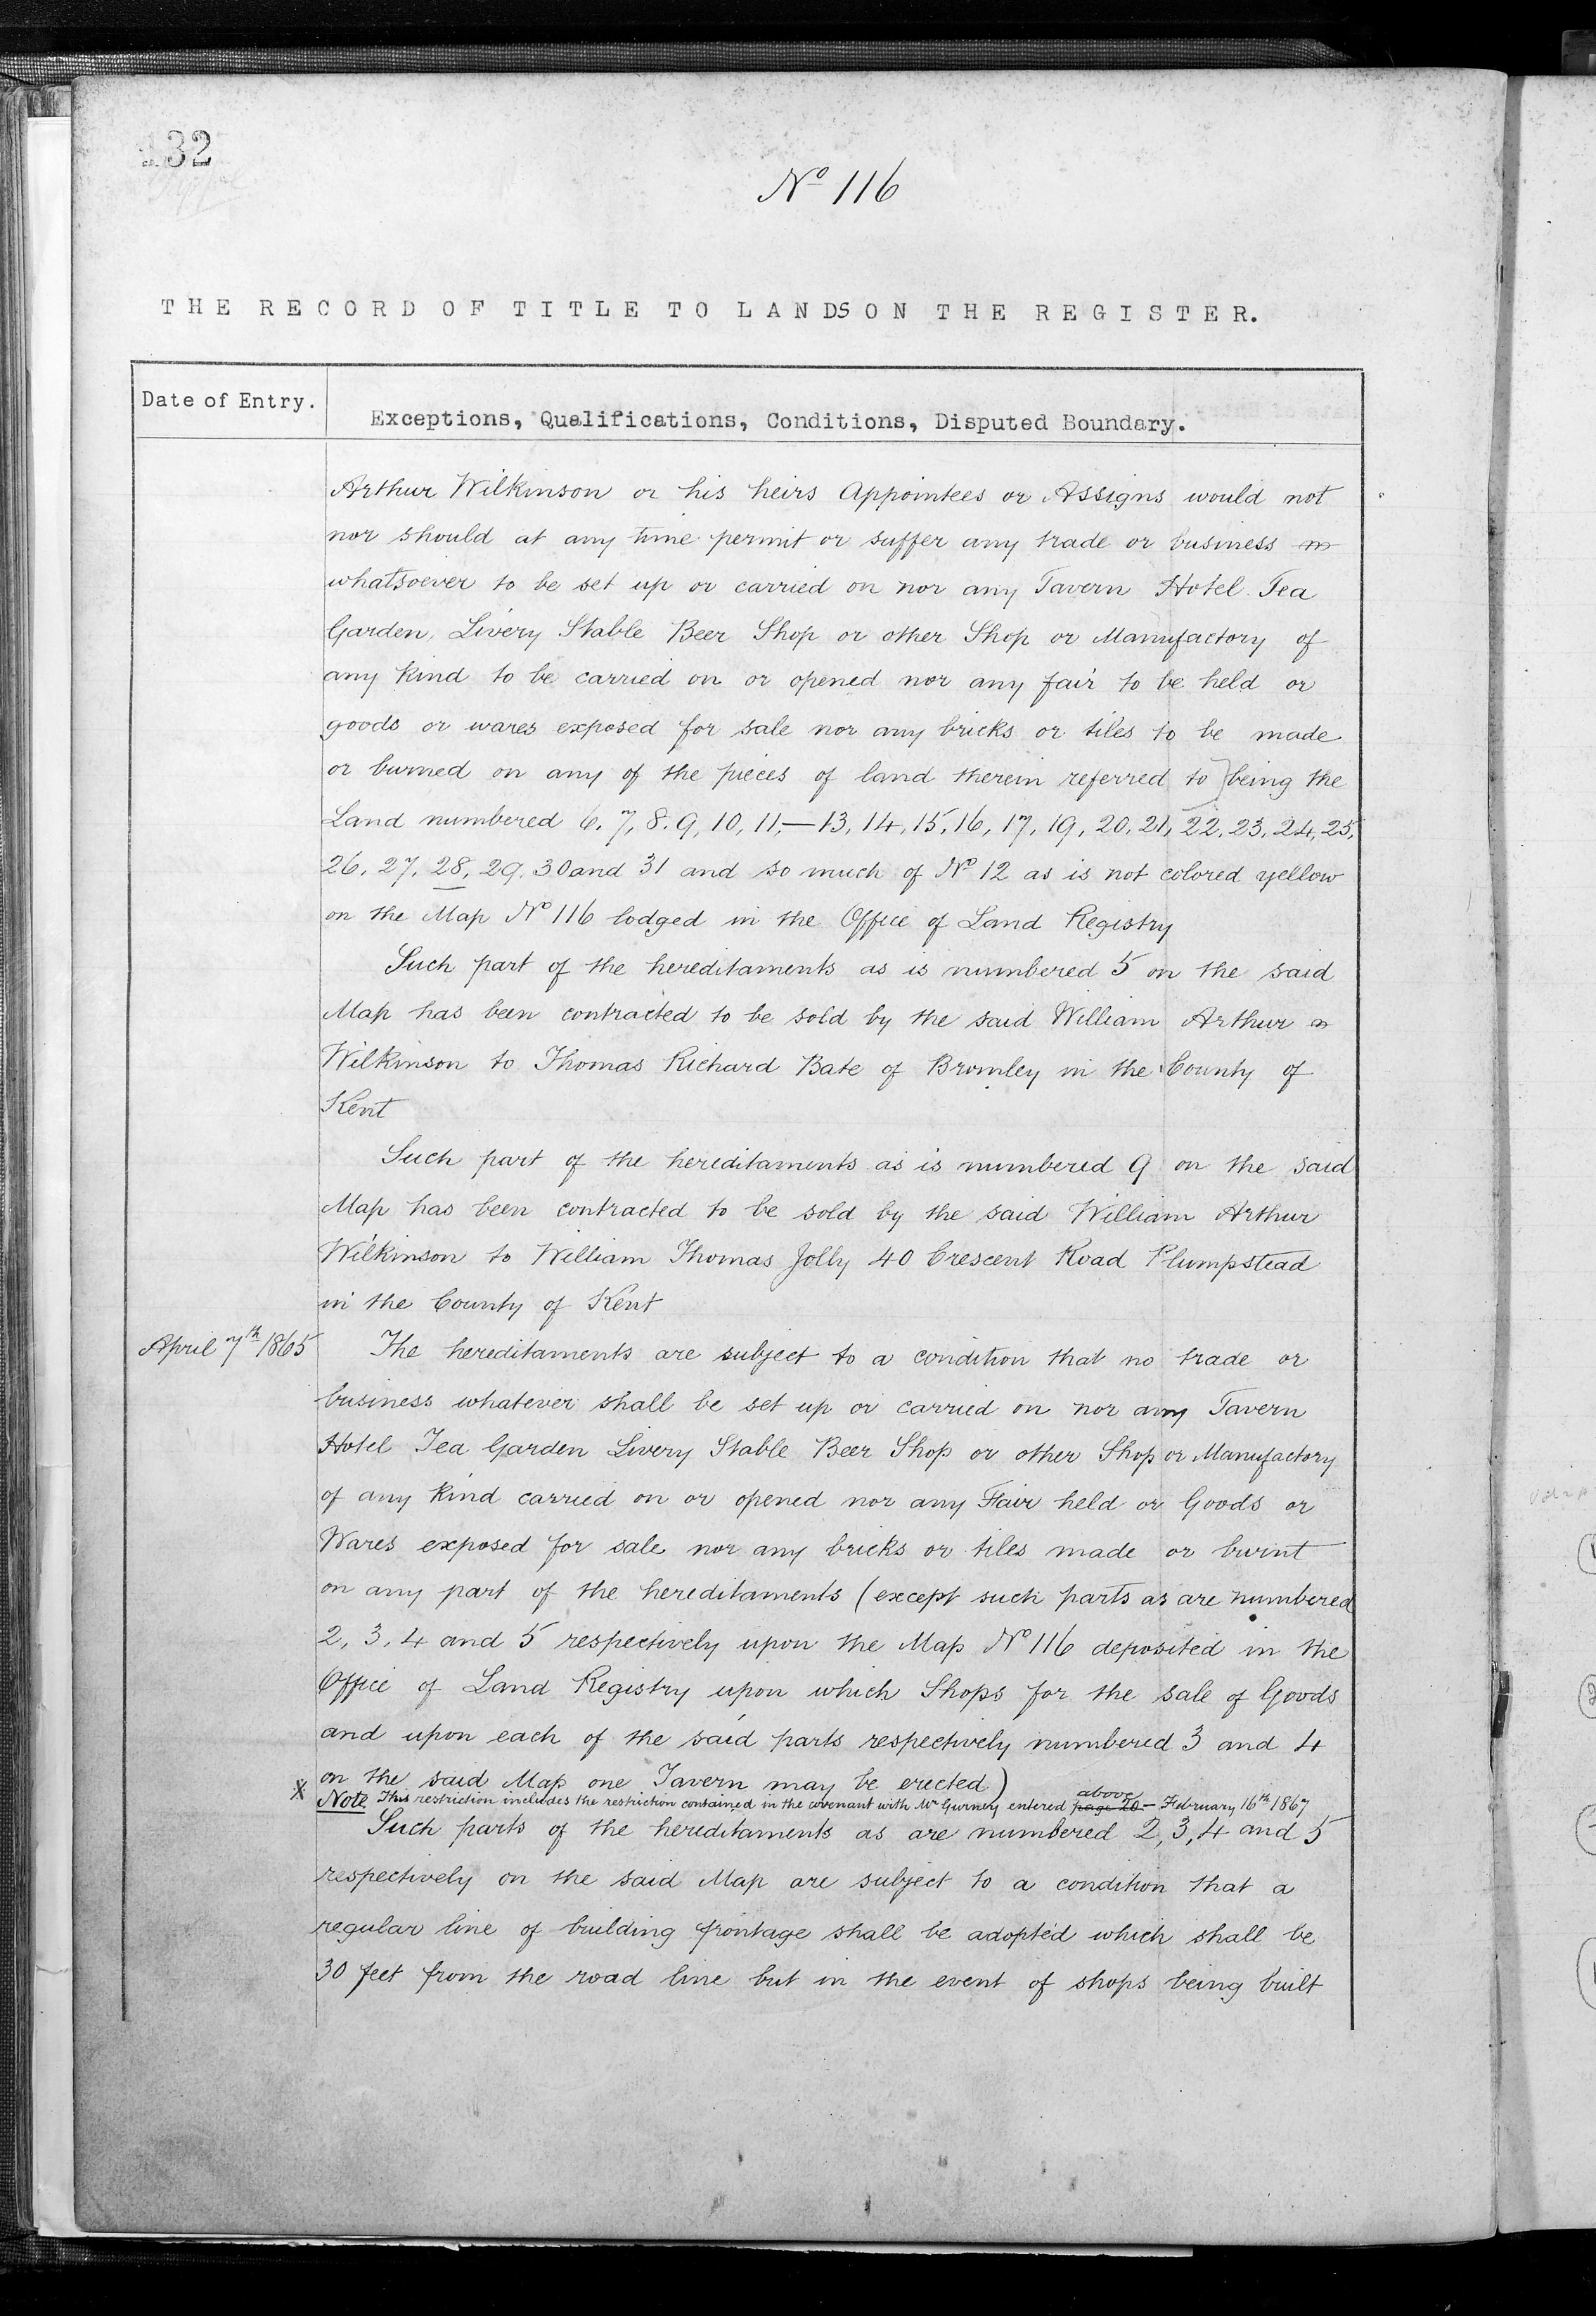 132
Nº 116
THE RECORD OF TITLE TO LANDS ON THE REGISTER.
Date of Entry.
Exceptions, Qualifications, Conditions, Disputed Boundary.
Arthur Wilkinson or his heirs Appointees or Assigns would not
nor should at any time permit or suffer any trade or business
whatsoever to be set up or carried on nor any Tavern Hotel Tea
Garden, Livery Stable Beer Shop or other Shop or Manufactory of
any kind to be carried on or opened nor any fair to be held or
goods or wares exposed for sale nor any bricks or tiles to be made
or burned on any of the pieces of land therein referred to] being the
Land numbered 6, 7, 8, 9, 10, 11,—13, 14, 15, 16, 17, 19, 20, 21, 22, 23, 24, 25,
26, 27, 28, 29, 30 and 31 and so much of Nº 12 as is not colored yellow
on the Map Nº 116 lodged in the Office of Land Registry
Such part of the hereditaments as is numbered 5 on the said
Map has been contracted to be sold by the said William Arthur
Wilkinson to Thomas Richard Bate of Bromley in the County of
Kent
Such part of the hereditaments as is numbered 9 on the said
Map has been contracted to be sold by the said William Arthur
Wilkinson to William Thomas Jolly 40 Crescent Road Plumpstead
in the County of Kent
April 7th 1865
The hereditaments are subject to a condition that no trade or
business whatever shall be set up or carried on nor any Tavern
Hotel Tea Garden Livery Stable Beer Shop or other Shop or Manufactory
of any kind carried on or opened nor any Fair held or Goods or
Wares exposed for sale nor any bricks or tiles made or burnt
on any part of the hereditaments (except such parts as are numbered
2, 3, 4 and 5 respectively upon the Map Nº 116 deposited in the
Office of Land Registry upon which Shops for the sale of Goods
and upon each of the said parts respectively numbered 3 and 4
on the said Map one Tavern may be erected)
above
X Note This restriction includes the restriction contained in the covenant with Mr Gurney entered page 20 — February 16th 1867
Such parts of the hereditaments as are numbered 2, 3, 4 and 5
respectively on the said Map are subject to a condition that a
regular line of building frontage shall be adopted which shall be
30 feet from the road line but in the event of shops being built